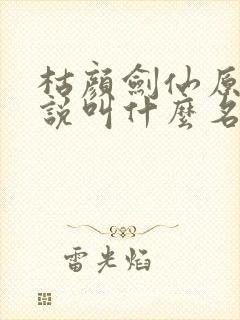 枯顏劍仙原
說叫什麼名
雷光焰